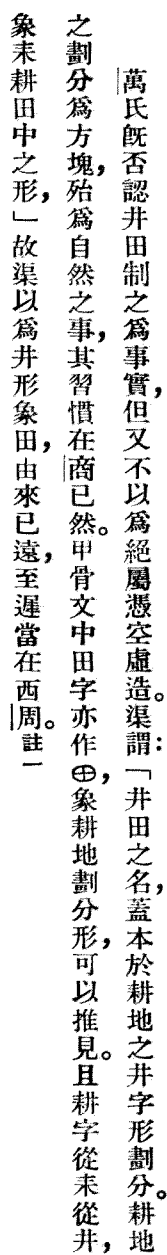 萬氏旣否認井田制之爲事實，但又不以爲絕屬憑空虛造。渠謂：「井田之名，蓋本於耕地之井字形劃分。耕地
之劃分爲方塊，殆爲自然之事，其習慣在商已然。甲骨文中田字亦作⊕，象耕地劃分形，可以推見。且耕字從耒從井，
象耒耕田中之形，」故渠以爲井形象田，由來已遠，至遲當在西周。註一